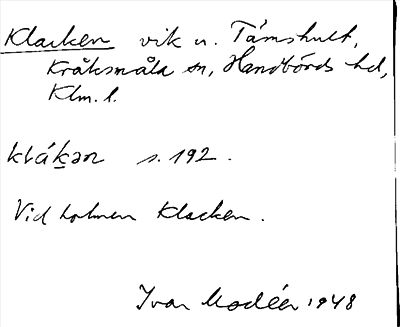 Klacken vik u. Tämshult,
Kråksmåla sn, Handbörds hd,
Klm. l.
klák̲ən s. 192.
Vid holmen Klacken.
Ivar Modéer 1948